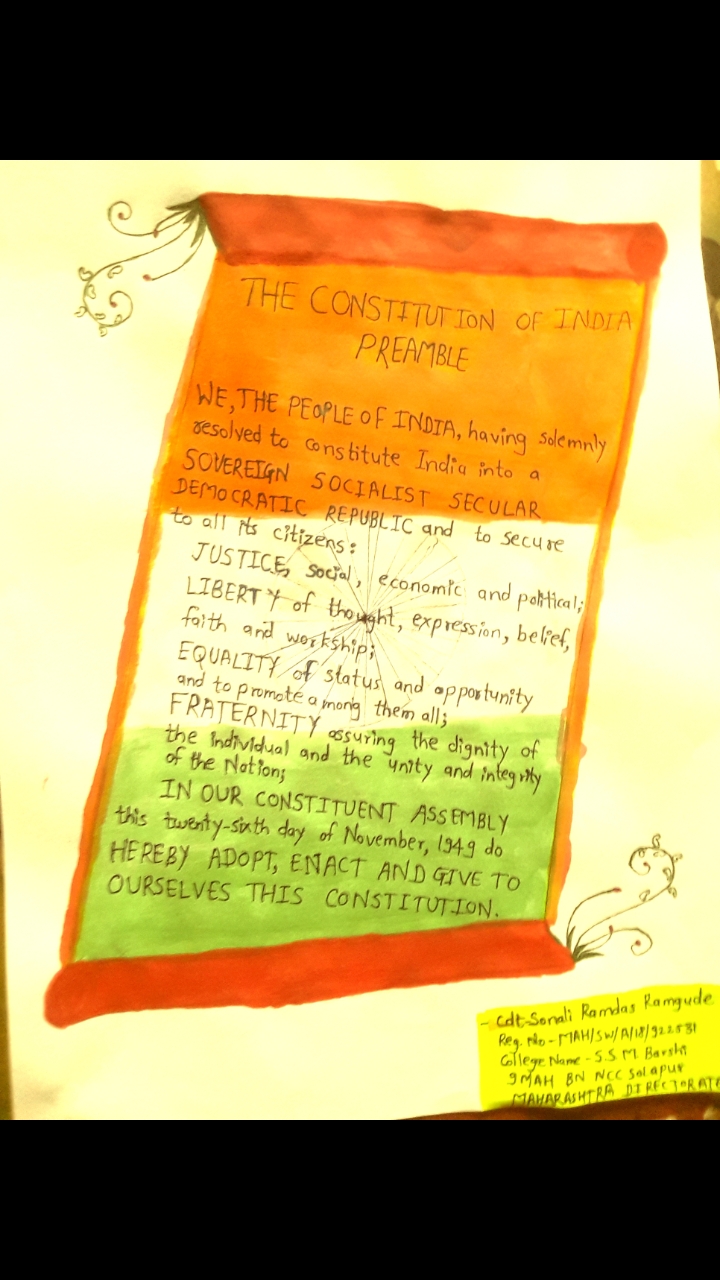 THE CONSTITUTION OF INDIA
PREAMBLE
WE, THE PEOPLE OF INDIA, having solemnly
resolved to constitute India into a
SOVEREIGN SOCIALIST SECULAR
DEMOCRATIC REPUBLIC and to secure
to all its citizens:
JUSTICE, social, economic and political;
LIBERTY of thought, expression, belief,
faith and workship;
EQUALITY of status and opportunity
and to promote among them all;
FRATERNITY assuring the dignity of
the individual and the unity and integrity
of the Nation;
IN OUR CONSTITUENT ASSEMBLY
this twenty-sixth day of November, 1949 do
HEREBY ADOPT, ENACT AND GIVE TO
OURSELVES THIS CONSTITUTION.
- Cdt-Sonali Ramdas Ramgude
Reg. No - MAH/SW/A/18/922531
College Name - S.S.M. Barshi
9 MAH BN NCC Solapur
MAHARASHTRA DIRECTORATE